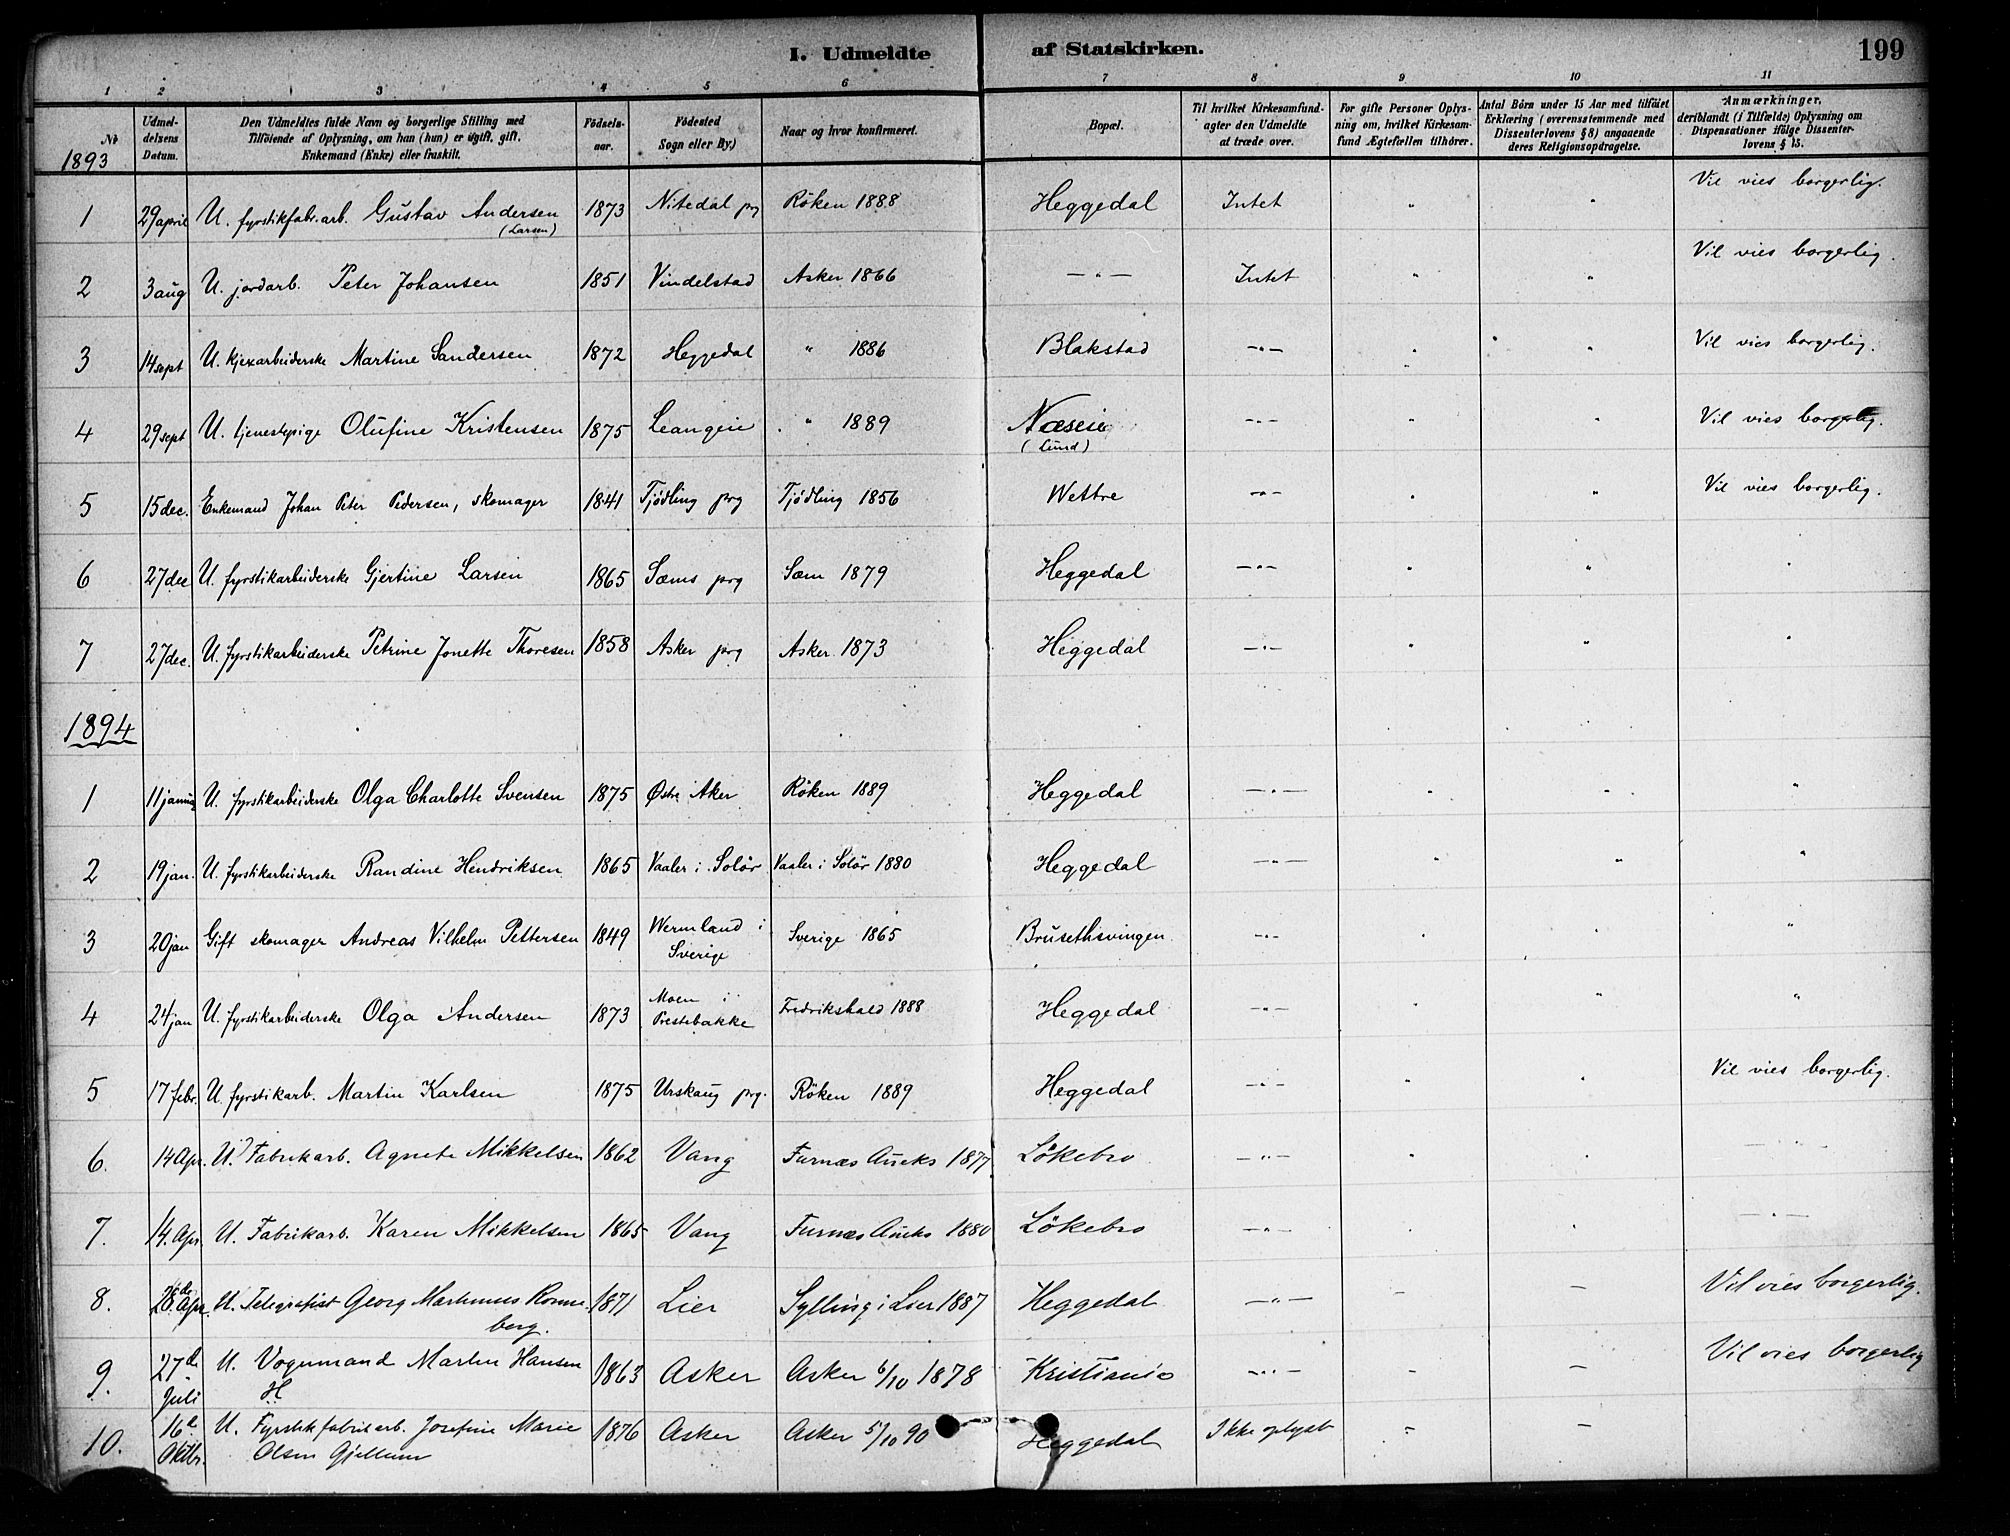 I. Udmeldte af Statskirken. 199
1 2 3 4 5 6 7 8 9 10 11
№ Udmeldelsens Datum. Den Udmeldtes fulde Navn og borgerlige Stilling med Tilføiende af Oplysning, om han (hun) er ugift, gift, Enkemand (Enke) eller fraskilt. Fødselsaar. Fødested Sogn eller By,) Naar og hvor konfirmeret. Bopæl. Til hvilket Kirkesamfund agter den Udmeldte at træde over. For gifte Personer Oplysning om, hvilket Kirkesamfund Ægtefællen tilhører. Antal Børn under 15 Aar med tilføiet Erklæring (overensstemmende med Dissenterlovens § 8) angaaende deres Religionsopdragelse. Anmærkninger, deriblandt (i Tilfælde) Oplysning om Dispensationer ifølge Dissenterlovens § 15.
1893
1 29 april U. fyrstikfabr.arb. Gustav Andersen (Larsen) 1873 Nitedal prg Röken 1888 Heggedal Intet " " Vil vies borgerlig.
2 3 aug U. jordarb. Peter Johansen 1851 Vindelstad Asker 1866 — " — Intet " " Vil vies borgerlig.
3 14 sept U. kjexarbeiderske Martine Sandersen 1872 Heggedal " 1886 Blakstad — " — " " Vil vies borgerlig.
4 29 sept U. tjenestepige Olufine Kristensen 1875 Leangen " 1889 Næseie (Lund) — " — " " Vil vies borgerlig.
5 15 dec. Enkemand Johan Peter Pedersen, skomager 1841 Tjödling prg Tjödling 1856 Wettre — " — " " Vil vies borgerlig.
6 27 dec U. fyrstikarbeiderske Gjertine Larsen 1865 Sæms prg Sæm 1879 Heggedal — " — " " "
7 27 dec. U. fyrstikarbeiderske Petrine Jonette Thoresen 1858 Asker prg Asker 1873 Heggedal — " — " " "
1894
1 11 januar U. fyrstikarbeiderske Olga Charlotte Svensen 1875 Østre Aker Röken 1889 Heggedal — " — " " "
2 19 jan. U. fyrstikarbeiderske Randine Hendriksen 1865 Vaaler i Solör Vaaler i Solör 1880 Heggedal — " — " " "
3 20 jan Gift skomager Andreas Vilhelm Pettersen 1849 Wermland i Sverige Sverige 1865 Brusethsvingen — " — " " "
4 24 jan U. fyrstikarbeiderske Olga Andersen 1873 Moen i Prestebakke Fredrikshald 1888 Heggedal — " — " " "
5 17 febr. U. fyrstikarb. Martin Karlsen 1875 Urskaug prg. Röken 1889 Heggedal — " — " " Vil vies borgerlig.
6. 14 Apr. U. Fabrikarb. Agnete Mikkelsen 1862 Vang Furnæs Aneks 1877 Lökebro — " — " " — " —
7. 14. Apr. U. Fabrikarb. Karen Mikkelsen 1865 Vang Furnæs Aneks 1880 Lökebro — " — " " — " —
8. 28de Apr. U. Telegrafist Georg Martinius Ronneberg. 1871 Lier Sylling i Lier 1887 Heggedal — " — – – Vil vies borgerlig.
9. 27de Juli U. Vognmand Martin Hansen H. 1863 Asker Asker 6/10 1878 Kristiania — " — – – Vil vies borgerlig
10. 16e Oktbr. U. Fyrstikfabrikarb. Josefine Marie Olsen Gjellum 1876 Asker Asker 5/10 90 Heggedal Ikke oplyst – –